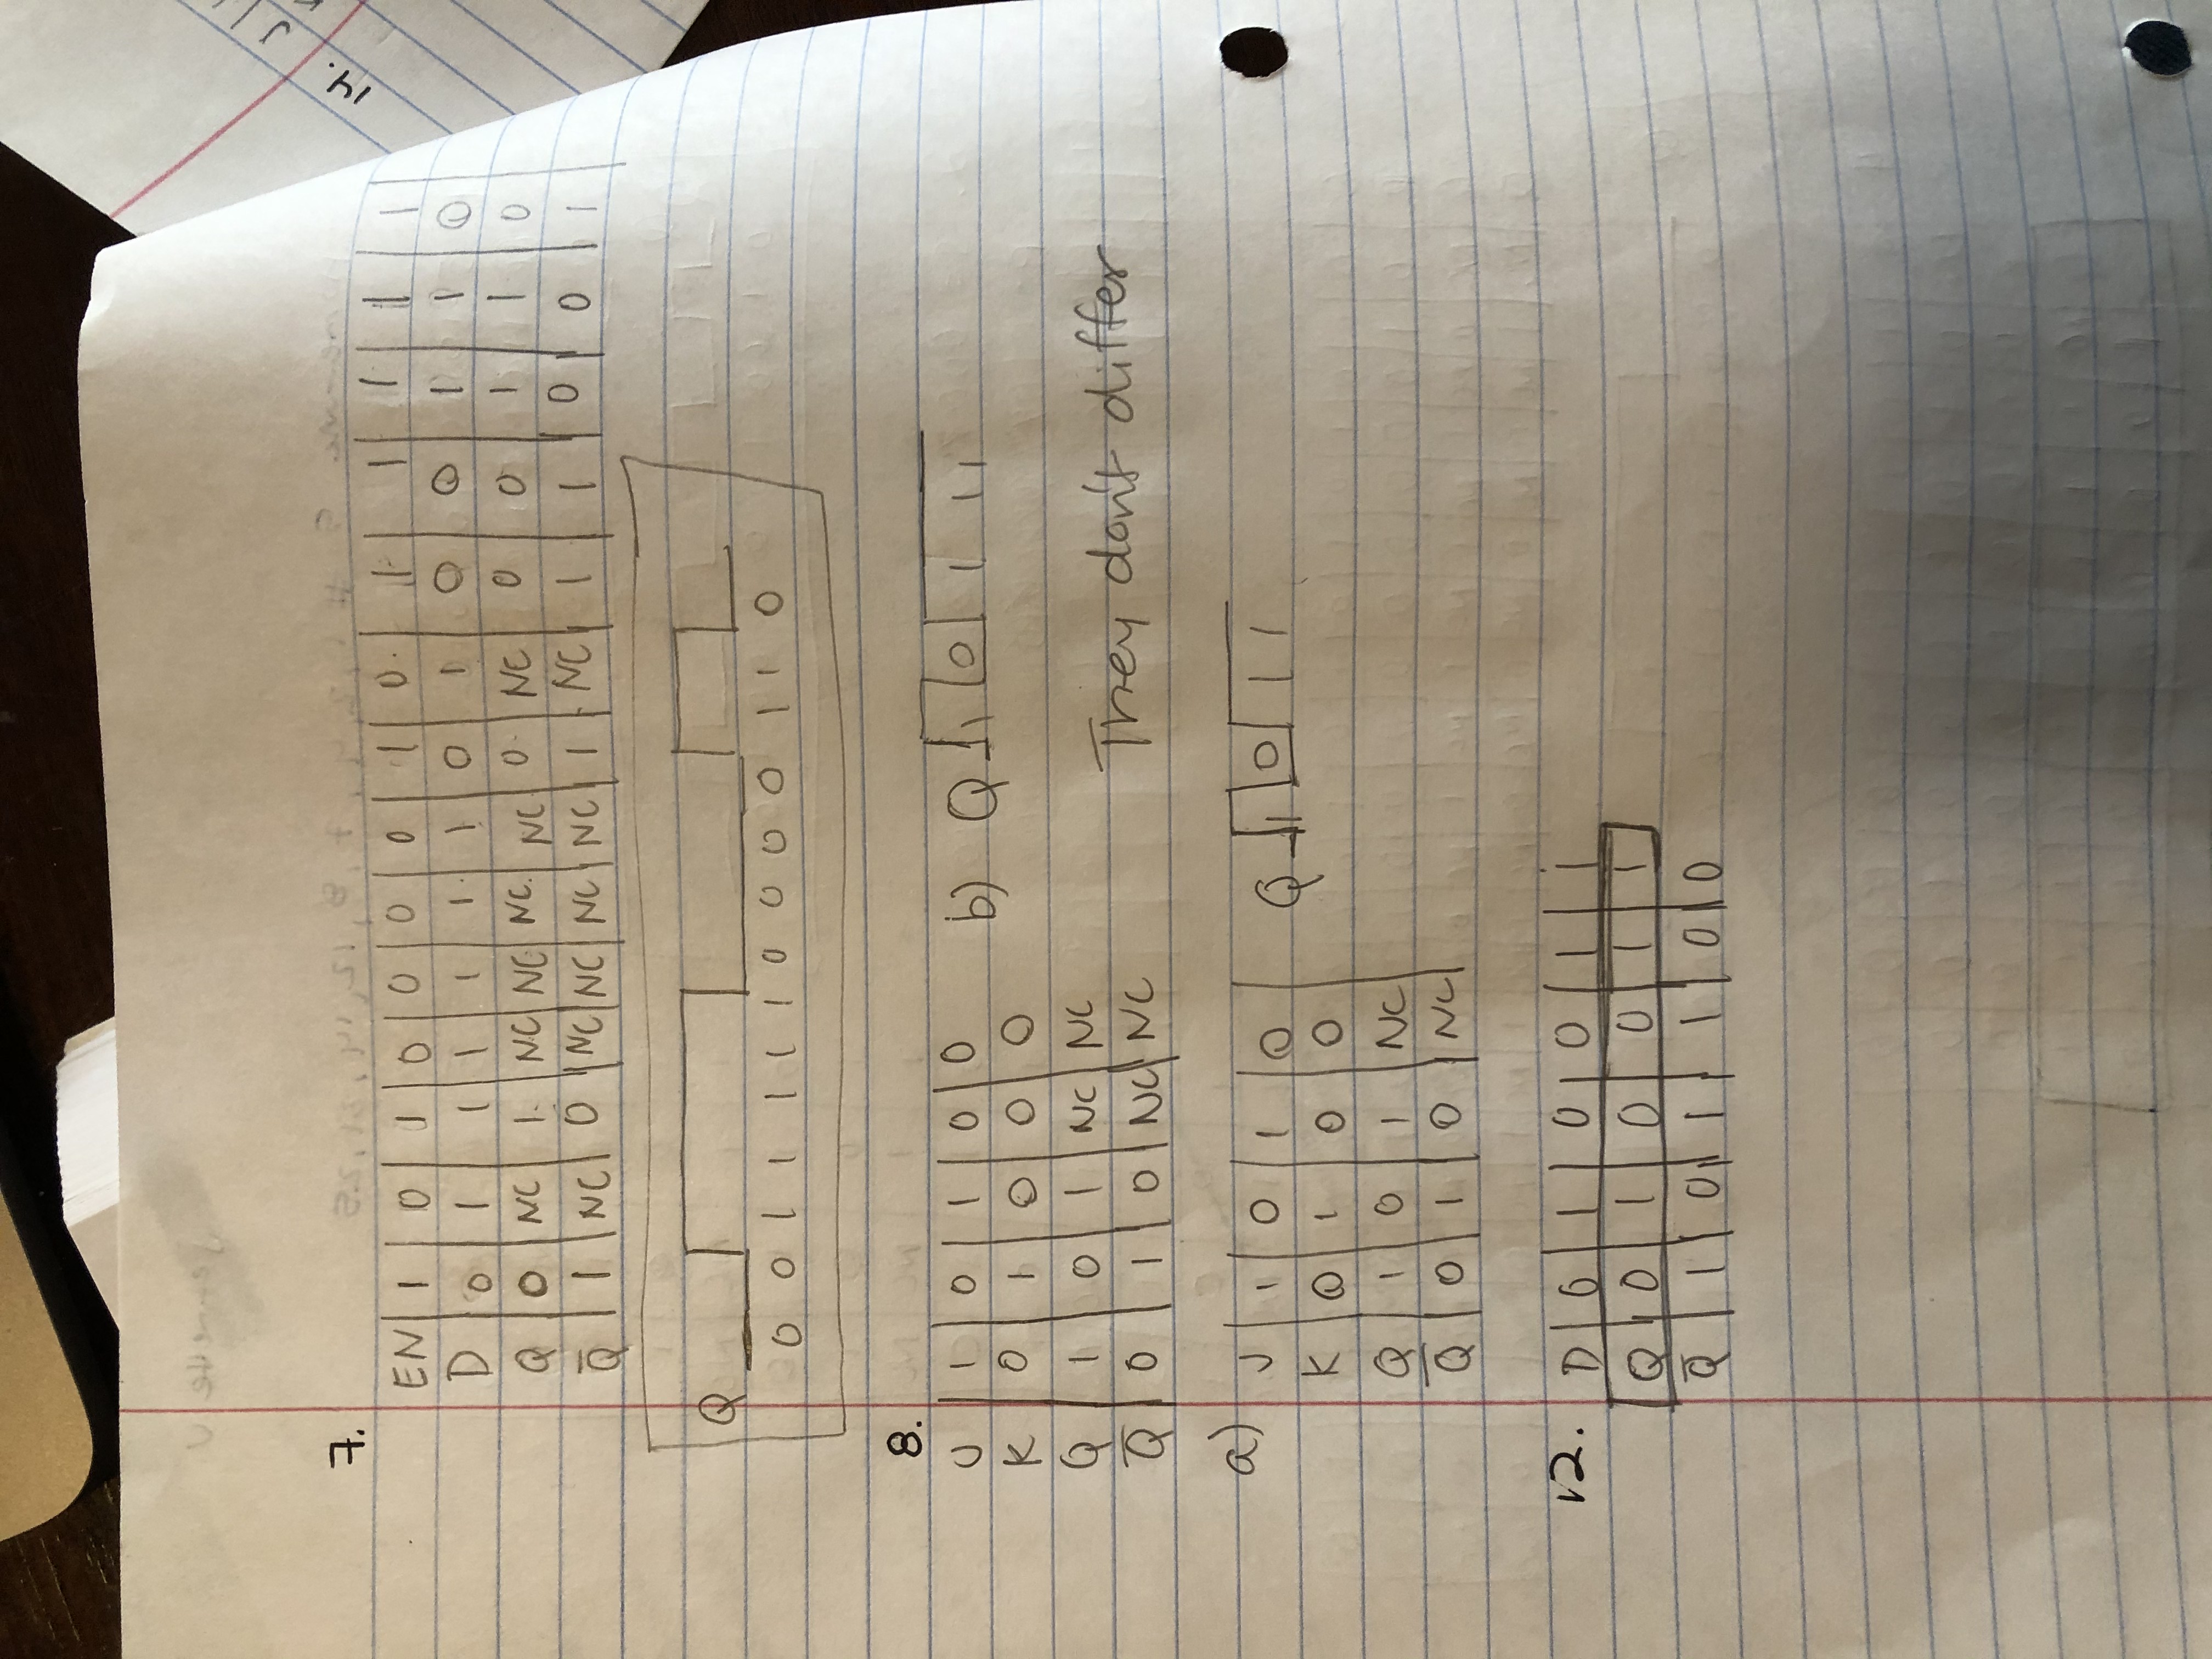 7.
EN 1 0 1 0 0 0 0 1 0 1 1 1 1 1
D 0 1 1 1 1 1 1 0 1 0 0 1 1 0
Q 0 NC 1 NC NC NC NC 0 NC 0 0 1 1 0
Q̅ 1 NC 0 NC NC NC NC 1 NC 1 1 0 0 1
Q
0 0 1 1 1 1 1 0 0 0 0 1 1 0
8.
J 1 0 1 0 0
K 0 1 0 0 0
Q 1 0 1 NC NC
Q̅ 0 1 0 NC NC
b) Q 1 0 1 1 1
They don't differ
a)
J 1 0 1 0
K 0 1 0 0
Q 1 0 1 NC
Q̅ 0 1 0 NC
Q 1 0 1 1
12.
D 0 1 0 0 1 1
Q 0 1 0 0 1 1
Q̅ 1 0 1 1 0 0
14.
J